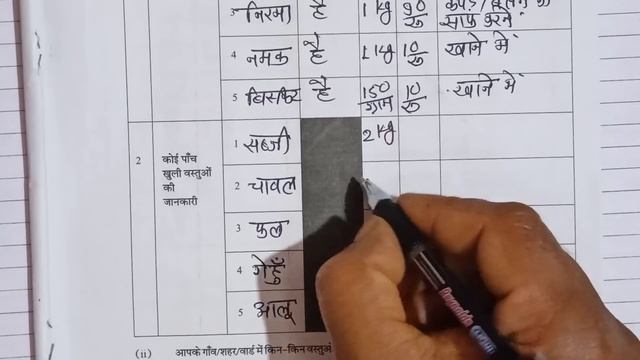 3 निरमा है 1 kg 90 रु
साफ करने
4 नमक है 1 kg 10 रु खाने में
5 बिस्कुट है 150 ग्राम 10 रु खाने में
2 कोई पाँच खुली वस्तुओं की जानकारी
1 सब्जी 2 kg
2 चावल
3 फुल
4 गेहूँ
5 आलू
(ii) आपके गाँव/शहर/वार्ड में किन-किन वस्तुअ